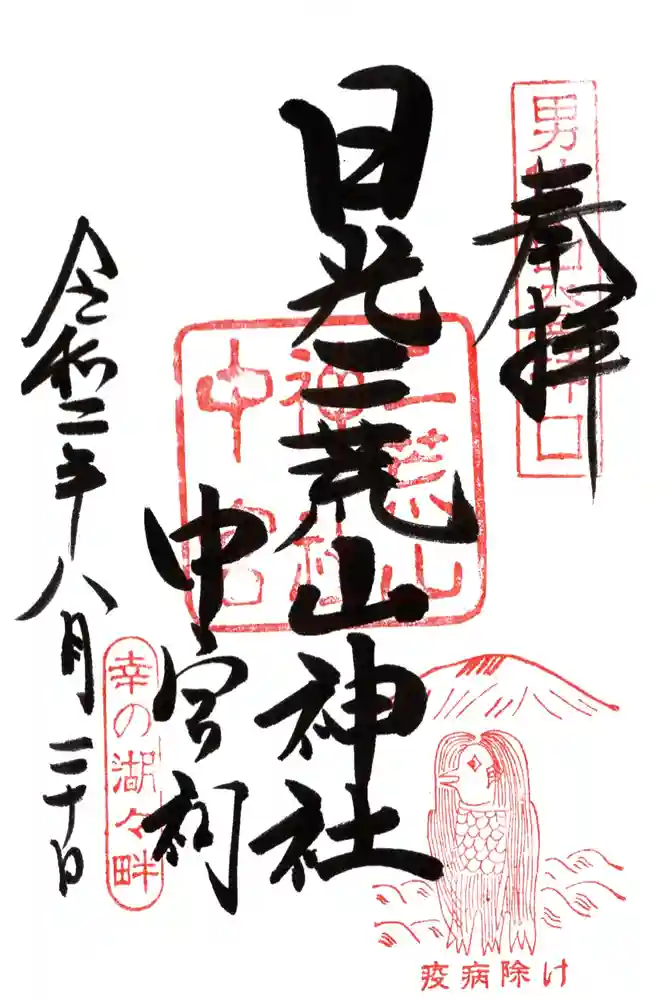 奉拝
男体山登拝口
日光二荒山神社
二荒山
神社
中宮
中宮祠
令和二年八月二十日
幸の湖々畔
疫病除け